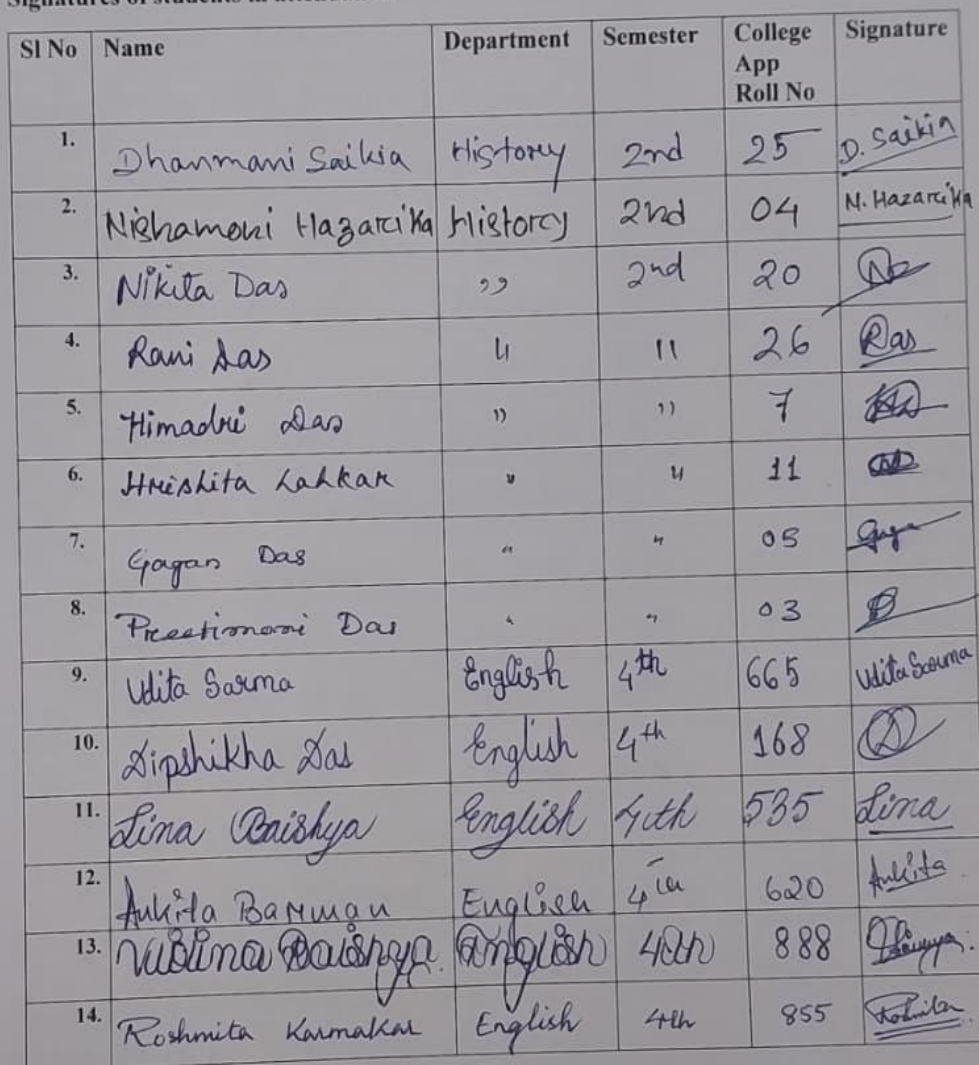 Sl No Name Department Semester College App Roll No Signature
1. Dhanmani Saikia History 2nd 25 D. Saikia
2. Nishamoni Hazarika History 2nd 04 N. Hazarika
3. Nikita Das " 2nd 20
4. Rani Das " " 26 Das
5. Himadri Das " " 7
6. Hrishita Lahkar " " 11
7. Gagan Das " " 05
8. Preetimoni Das " " 03
9. Udita Sarma English 4th 665 Udita Sarma
10. Dipshikha Das English 4th 168
11. Lina Baishya English 4th 535 Lina
12. Ankita Barman English 4th 620 Ankita
13. Baishya English 4th 888
14. Roshmita Karmakar English 4th 855